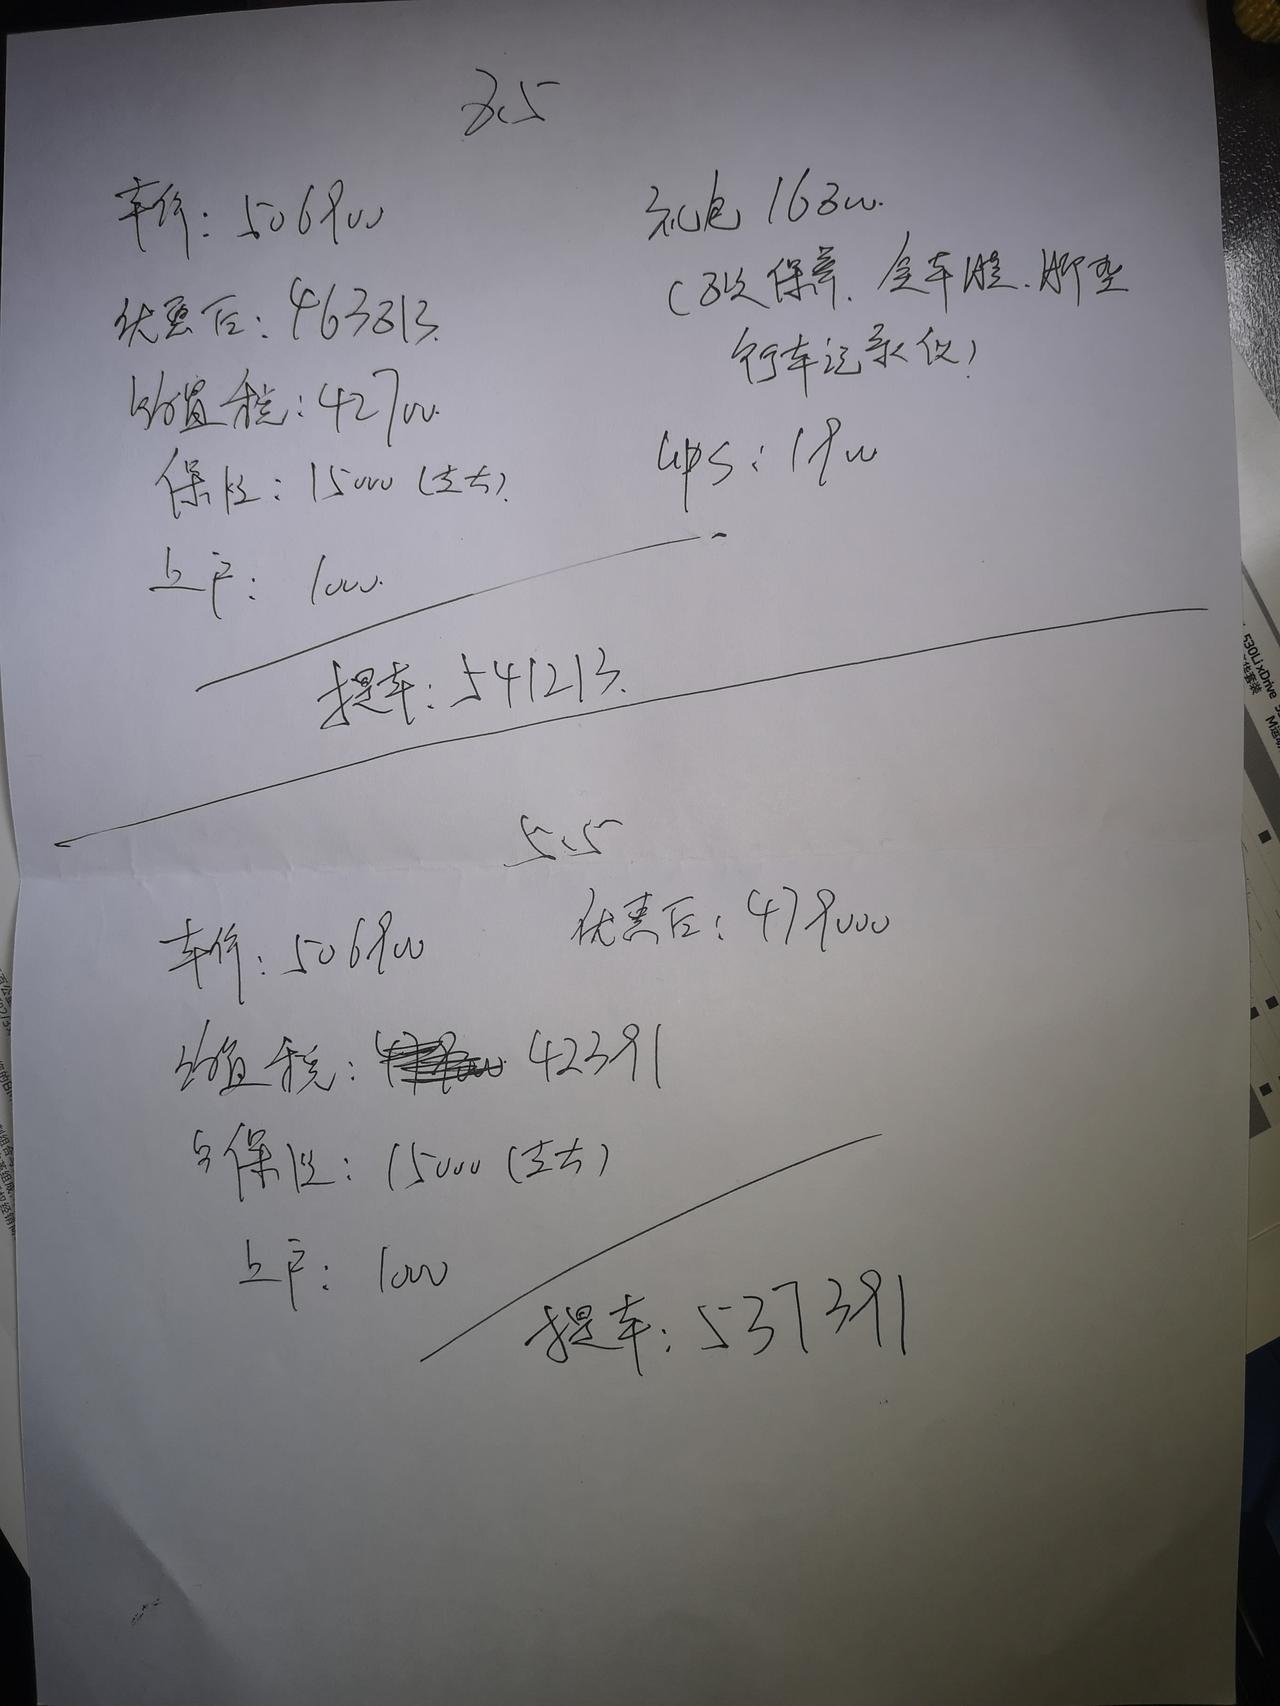 8.5
车价：506900
礼包 16800.
优惠后：463813.
（3次保养、全车膜、脚垫
行车记录仪）
购置税：42700.
保险：15000（左右）.
GPS：1900
上户：1000.
提车：541213.
5.5
车价：506900
优惠后：479000
购置税：42391
保险：15000（左右）
上户：1000
提车：537391
530Li xDrive